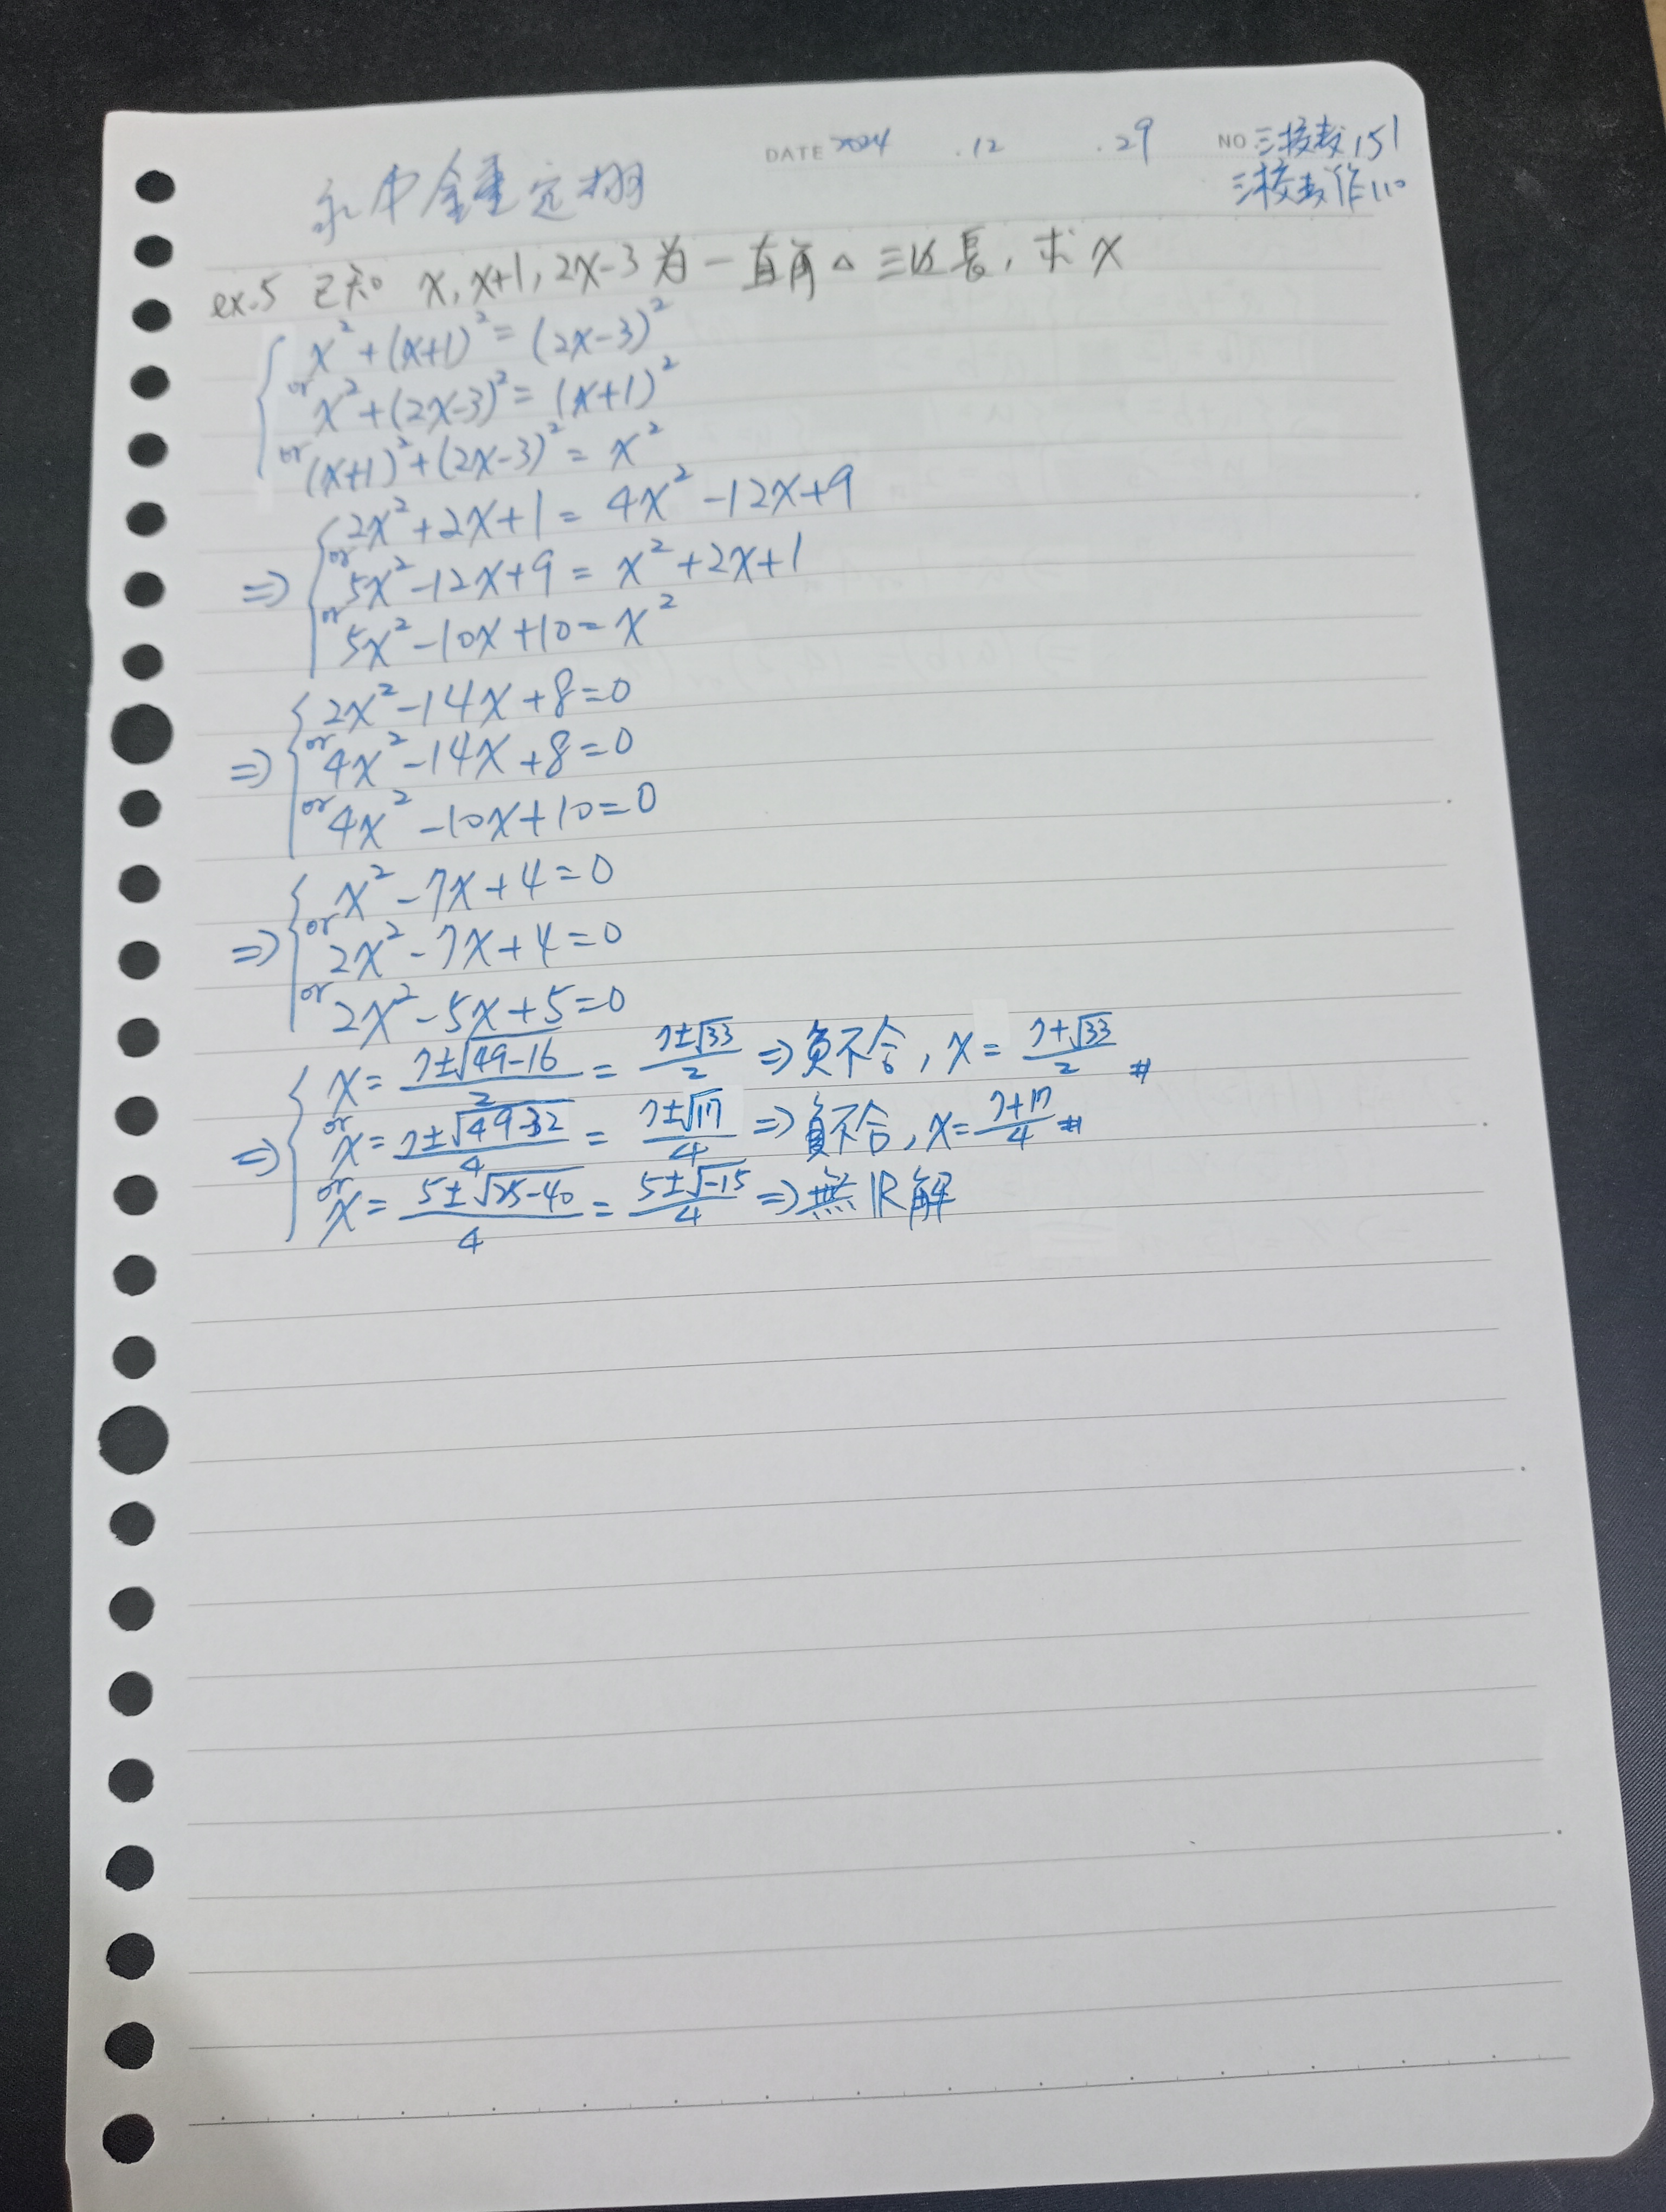 DATE 2024 .12 .29 NO 三校教151
三校教作110
永中鍾定栩
ex.5 已知 x, x+1, 2x-3 为一直角△三边長, 求 x
x²+(x+1)²=(2x-3)²
or x²+(2x-3)²=(x+1)²
or (x+1)²+(2x-3)²=x²
2x²+2x+1=4x²-12x+9
⇒ or 5x²-12x+9=x²+2x+1
or 5x²-10x+10=x²
2x²-14x+8=0
⇒ or 4x²-14x+8=0
or 4x²-10x+10=0
x²-7x+4=0
⇒ or 2x²-7x+4=0
or 2x²-5x+5=0
x=(7±√(49-16))/2=(7±√33)/2 ⇒負不合, x=(7+√33)/2 #
⇒ or x=(7±√(49-32))/4=(7±√17)/4 ⇒負不合, x=(7+17)/4 #
or x=(5±√(25-40))/4=(5±√-15)/4 ⇒無R解